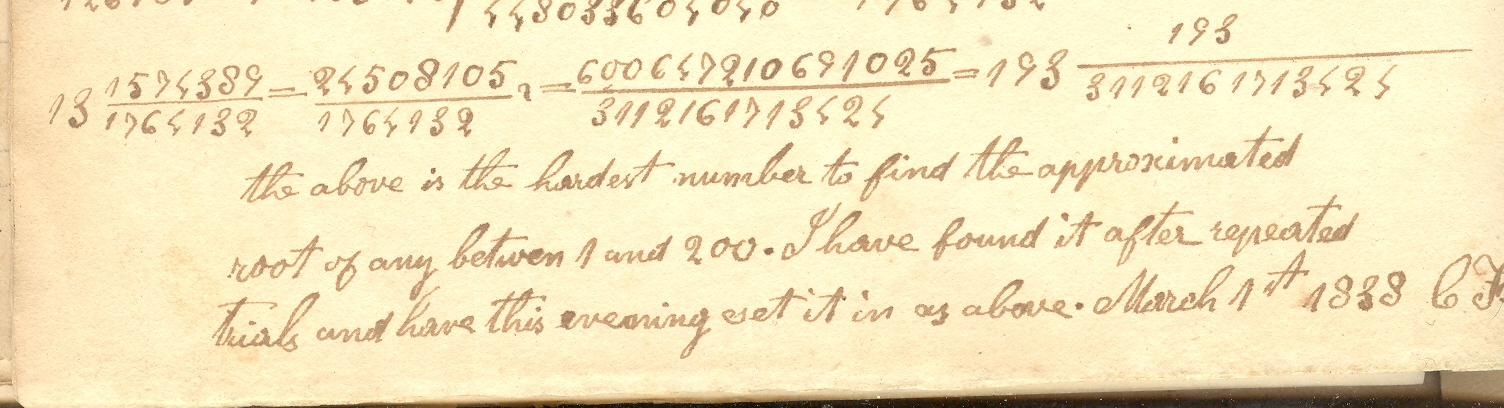 13 1574389/1764132 = 24508105/1764132 2 = 600647210691025/3112161713424 = 193 193/3112161713424
the above is the hardest number to find the approximated
root of any betwen 1 and 200. I have found it after repeated
trials and have this evening set it in as above. March 1st 1838 C